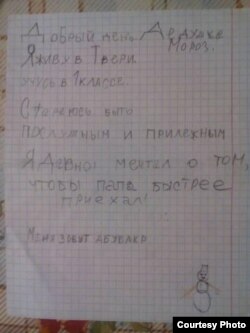 Добрый день Дедушке
Мороз.
Я живу в Твери
учусь в 1 классе
Стараюсь быть
послушным и прилежным
Я давно мечтал о том,
чтобы папа быстрее
приехал!
Меня зовут Абубакр.
Courtesy Photo